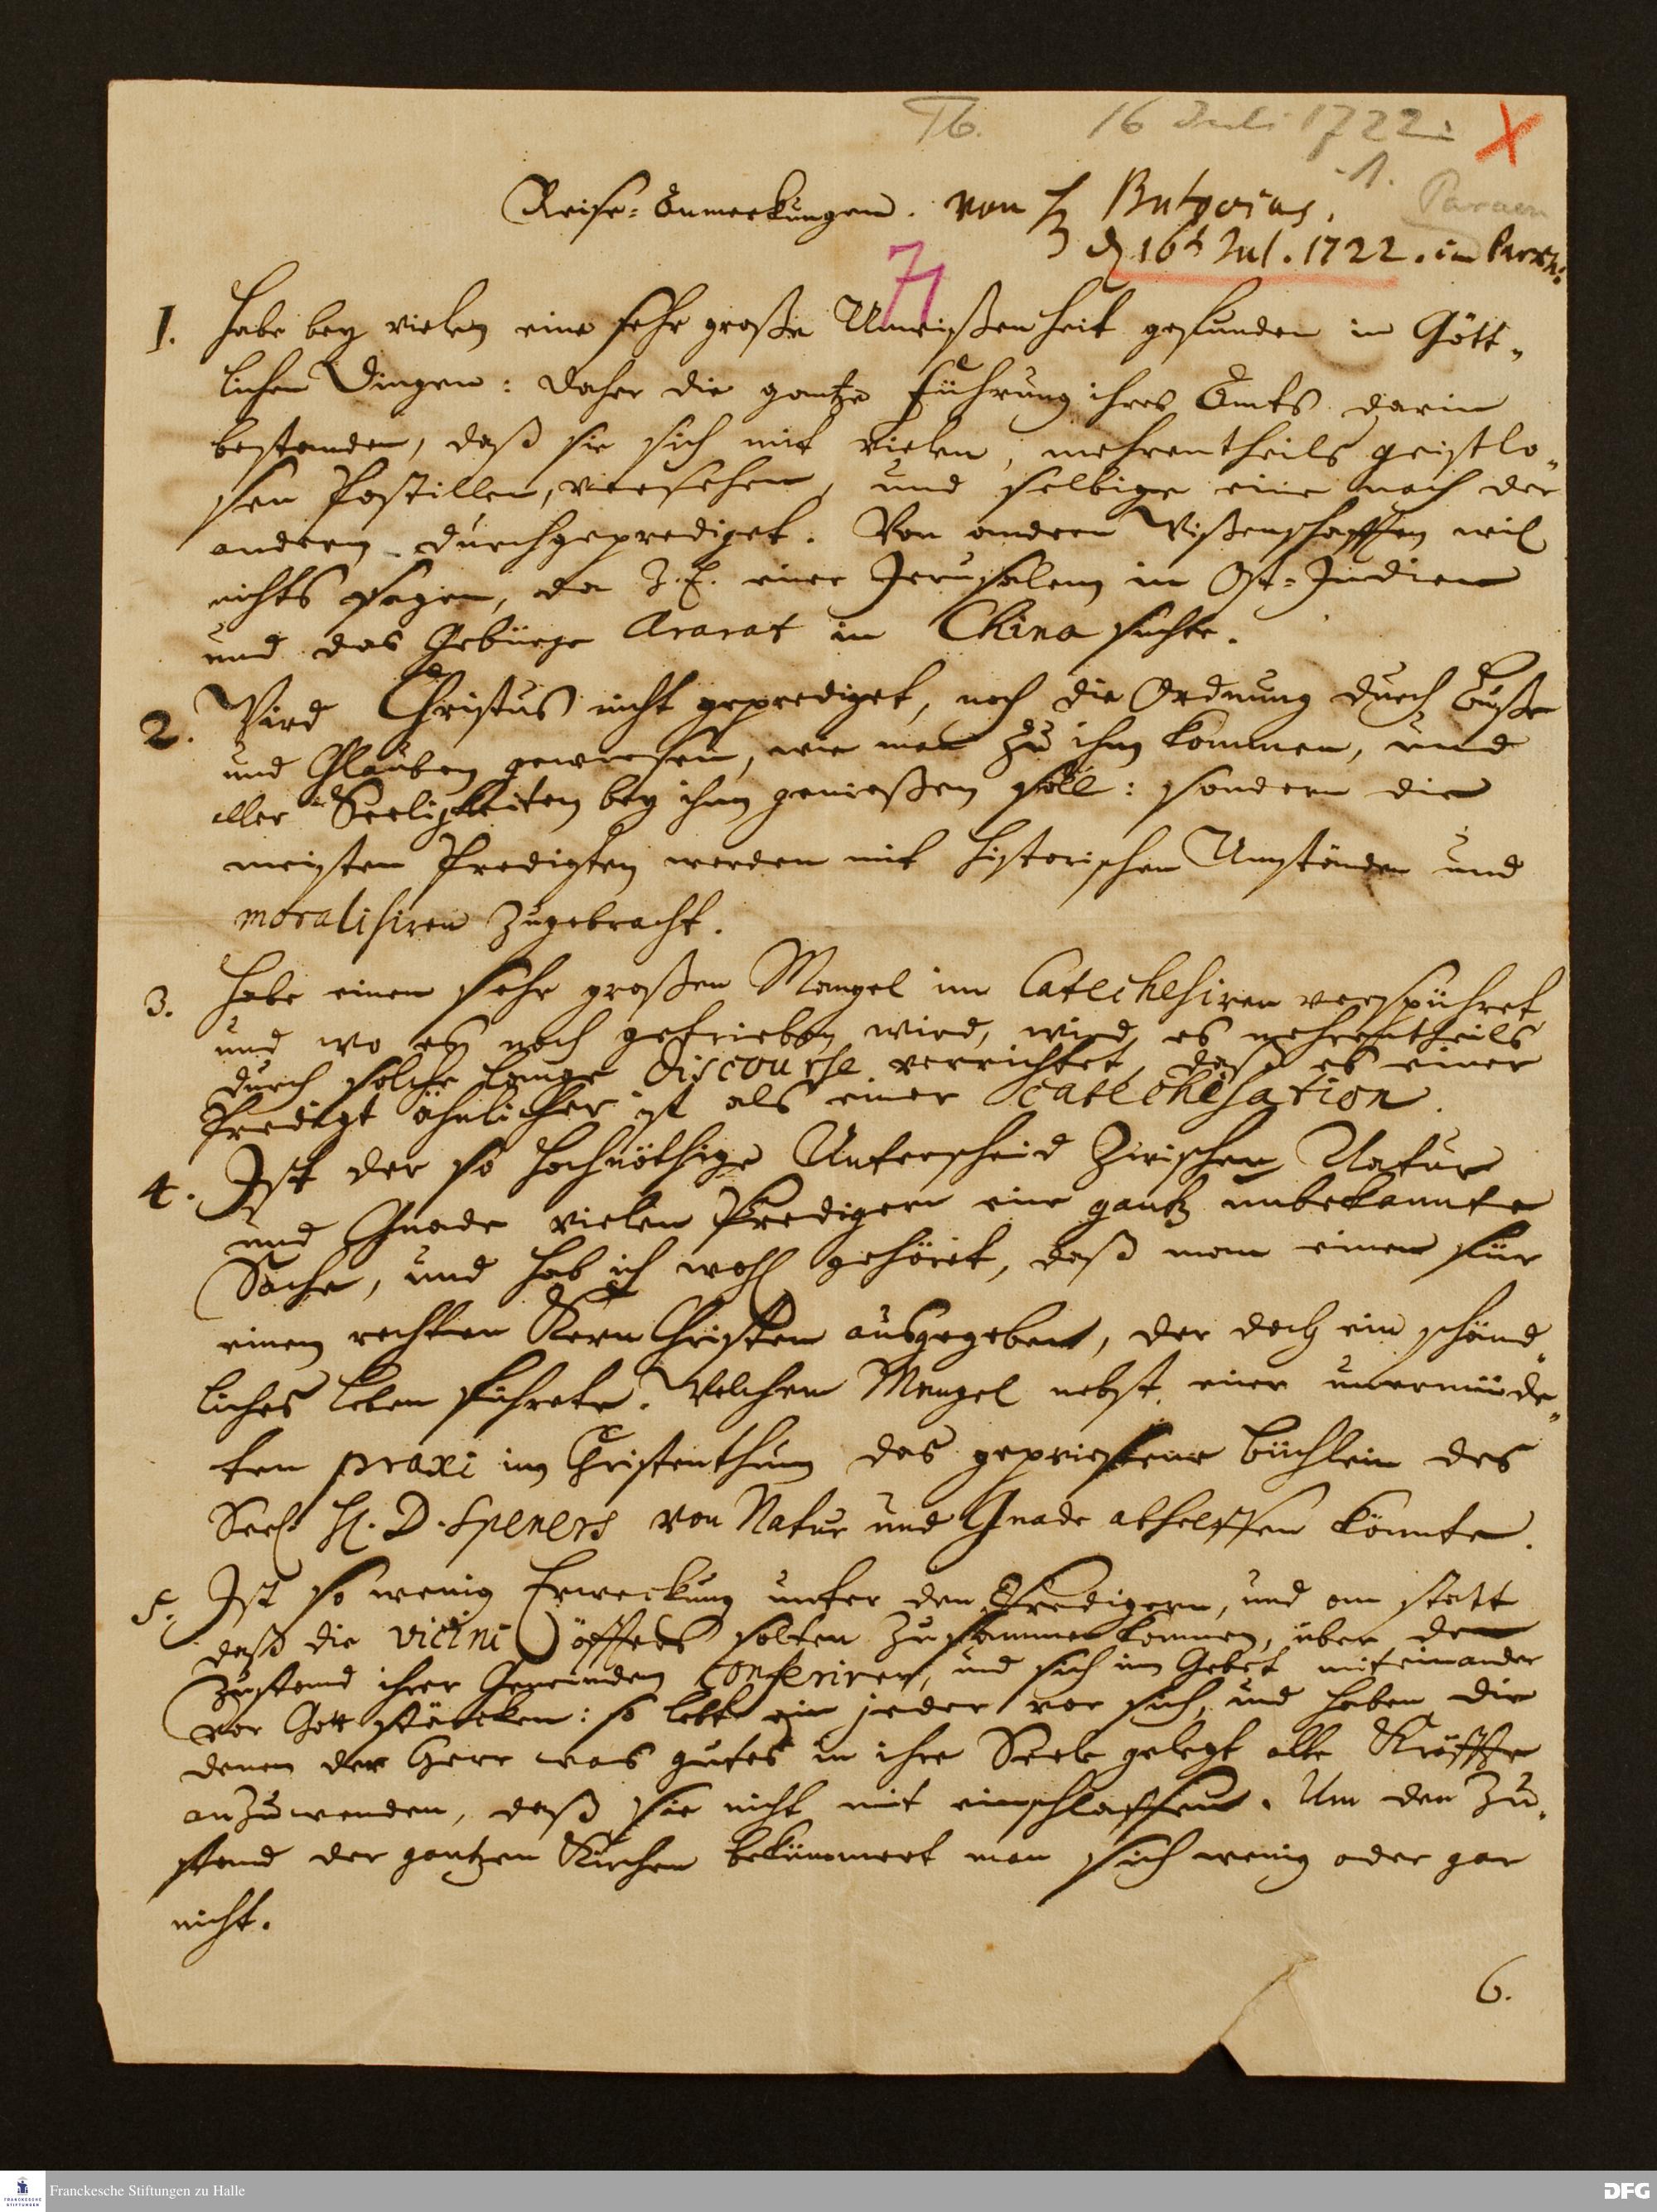 16 Juli 1722
Reise-Anmerkungen. von H
d 16t Jul. 1722. in
1. Habe bey vielen eine sehr große Unwißenheit gefunden in Gött-
lichen Dingen: daher die gantze Führung ihres Amts darin
bestanden, daß sie sich mit vielen, mehrentheils geistlo-
sen Postillen, versehen, und selbige eine nach der
andern durchgeprediget. Von andern Wißenschafften wil
nichts sagen, da z. E. einer Jerusalem in Ost-Indien
und das Gebürge Ararat in China suchte.
2. Wird Christus nicht geprediget, noch die Ordnung durch Buße
und Glauben gewiesen, wie man zu ihm kommen, und
aller Seeligkeiten bey ihm genießen soll: sondern die
meisten Predigten werden mit historischen Umständen und
moralisiren zugebracht.
3. Habe einen sehr großen Mangel im Catechesiren verspühret
und wo es noch getrieben wird, wird es mehrentheils
durch solche lange Discourse verrichtet, daß es einer
Predigt ähnlicher ist als einer catechesation.
4. Ist der so hochnöthige Unterscheid zwischen Natur
und Gnade vielen Predigern eine gantz unbekannte
Sache, und hab ich wohl gehöret, daß man einen für
einen rechten Kern Christen ausgegeben, der doch ein schänd-
liches Leben führete. Welchem Mangel nebst einer unermüde-
ten praxi im Christenthum das gepriesene Büchlein des
Seel. H. D. Speners von Natur und Gnade abhelffen könnte.
5. Ist so wenig Erweckung unter den Predigern, und an statt
daß die vicini öffters solten zusammen kommen, über den
Zustand ihrer Gemeinden conferiren, und sich im Gebet miteinander
vor Gott stärcken: so lebt ein jeder vor sich, und haben die
denen der Herr was gutes in ihre Seele gelegt alle Kräffte
anzuwenden, daß sie nicht mit einschlaffen. Um den Zu-
stand der gantzen Kirchen bekümmert man sich wenig oder gar
nicht.
6.
FRANCKESCHE STIFTUNGEN
Franckesche Stiftungen zu Halle
DFG